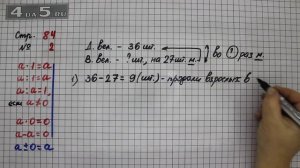 4PDA5.RU
Стр. 84
№ 2
a:1=a
a:1=a
a:a=1,
если a≠0
a·0=0
a-a=0
a±0=a
Д. вел. - 36 шт.
В. вел. - ? шт., на 27 шт. м.
во ? раз м.
1) 36-27=9 (шт.) - продали взрослых в